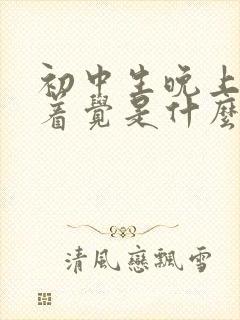 初中生晚上
着覺是什麼
清風戀飄雪